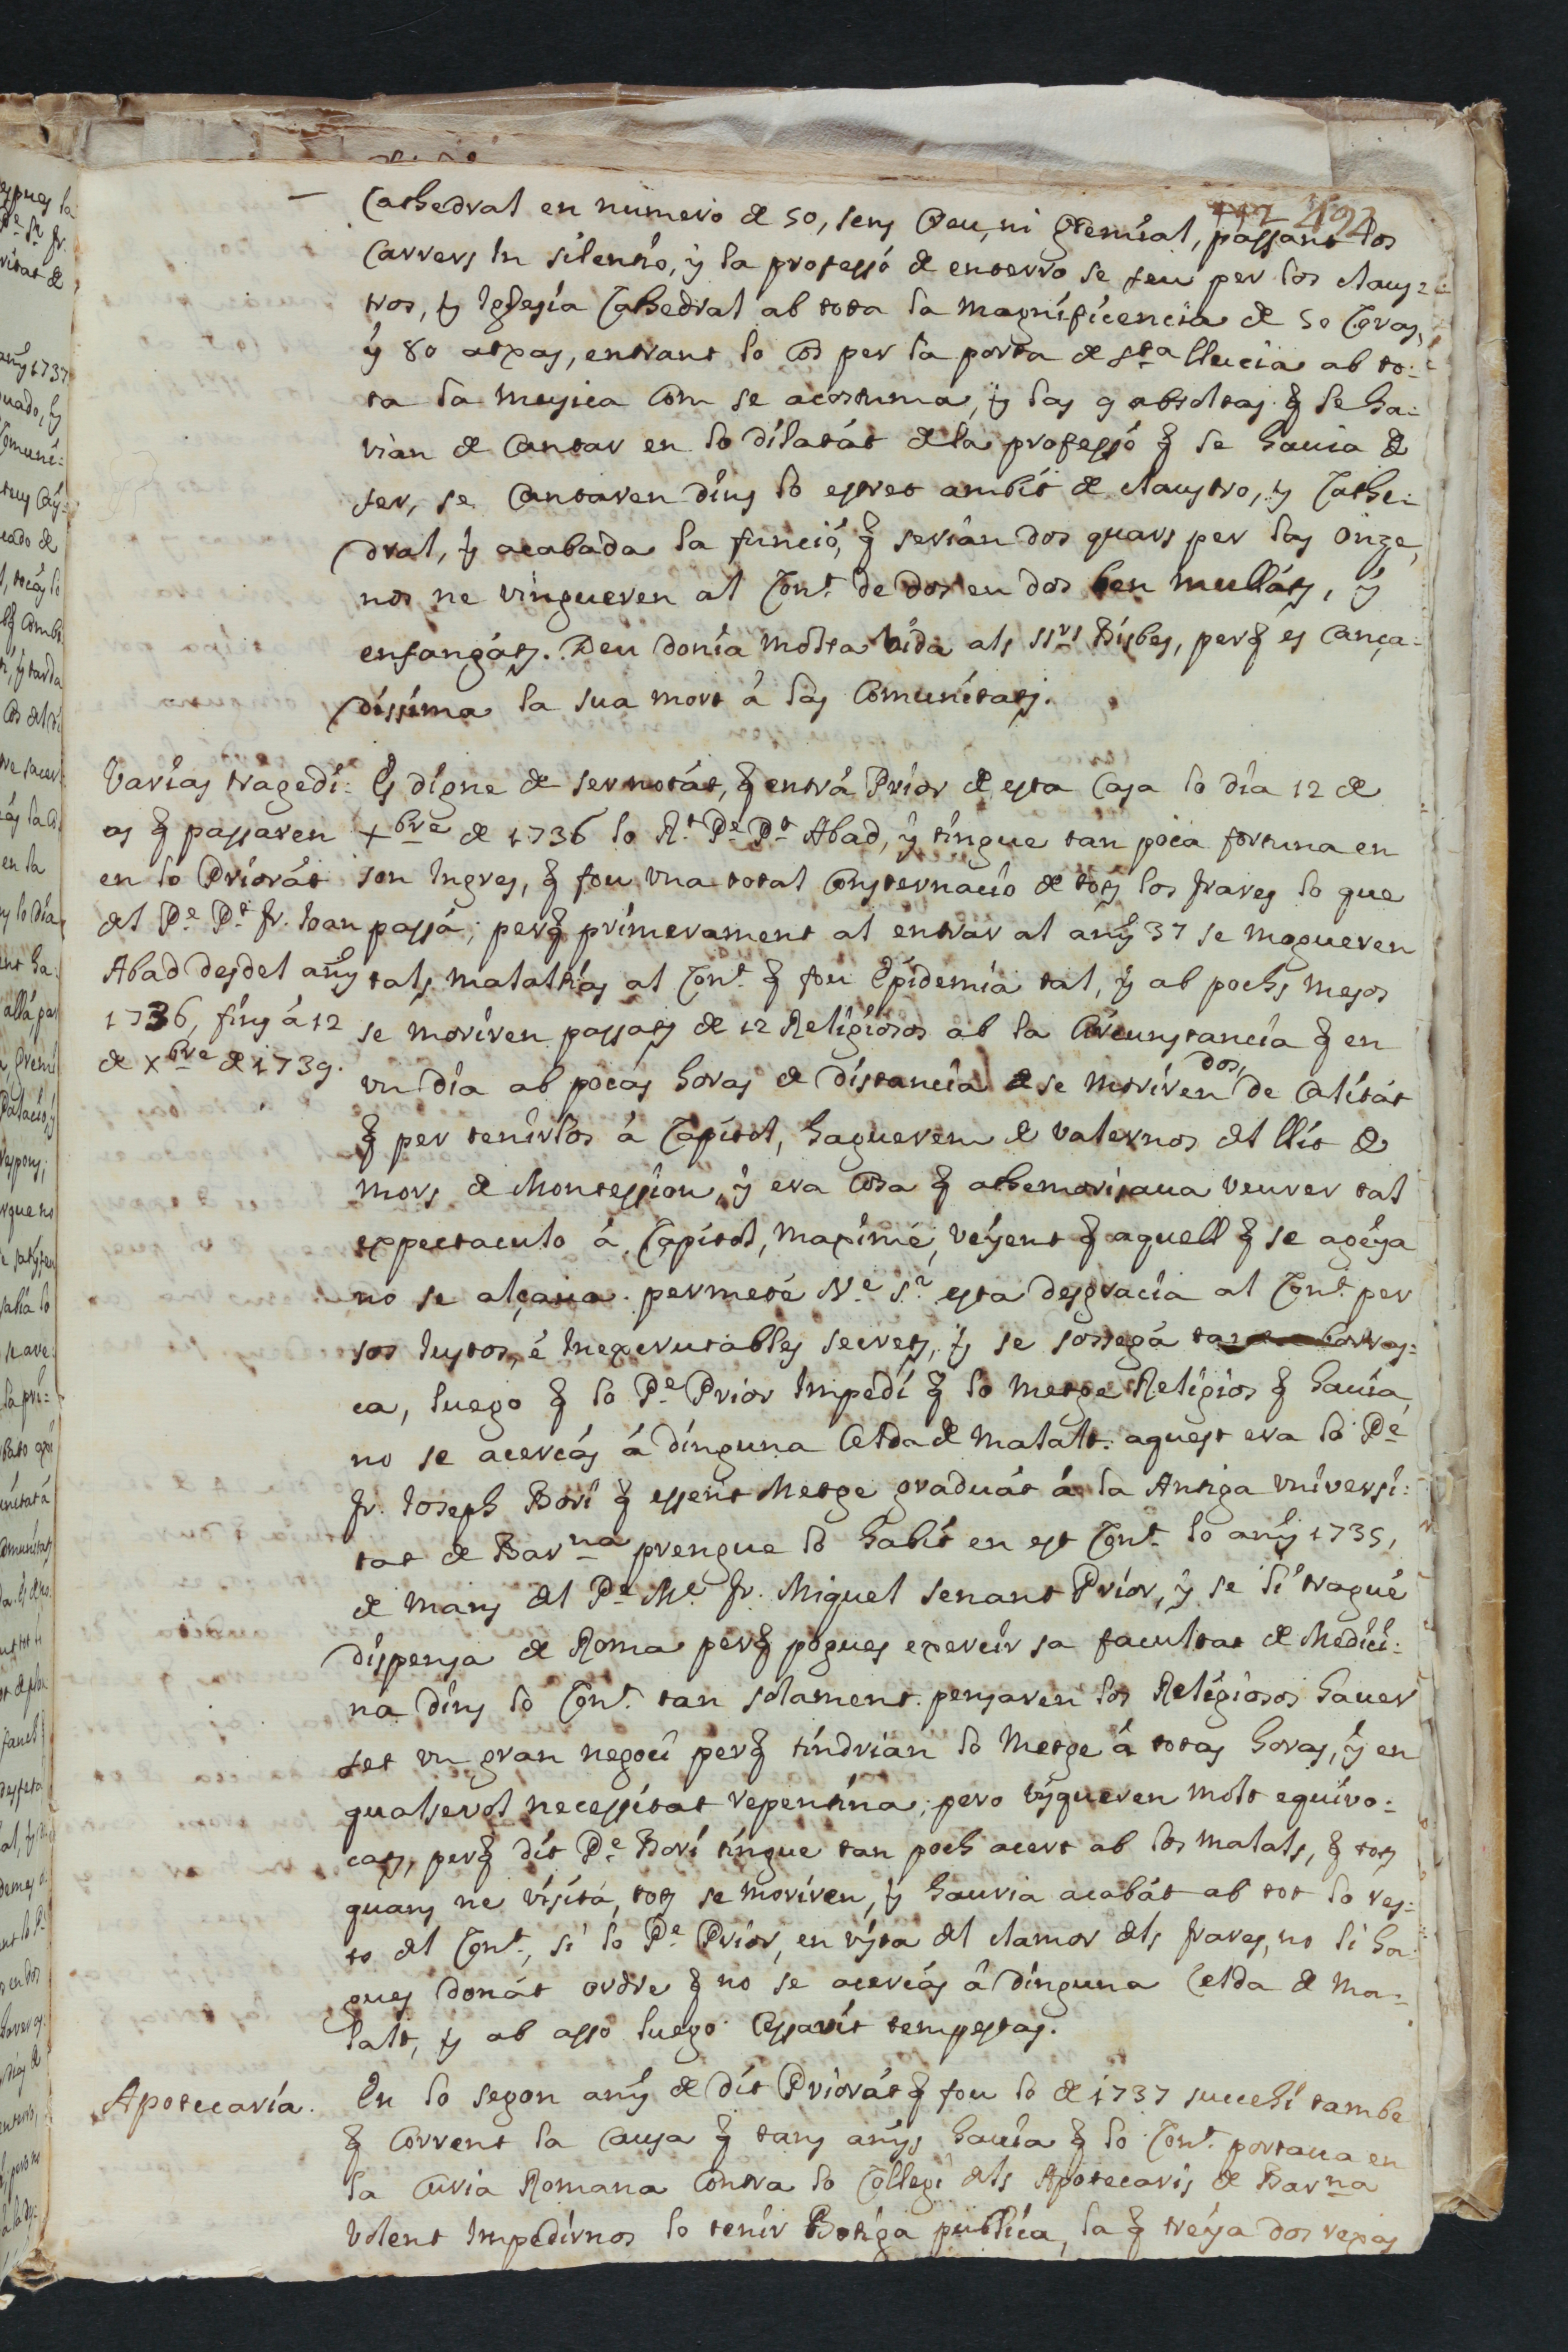 442 492
Cathedral en numero de 50, sens Creu, ni Gremial, passant los
Carrers In silentio, y la professó de enterro se feu per los claus-
tros, y Iglesia Cathedral ab tota la magnificencia de 50 Ceras,
y 80 atxas, entrant lo Cos per la porta de Sta llucia ab to-
ta la musica Com se acostuma, y las 9 absoltas q̃ se ha-
vian de Cantar en lo dilatát dela professó q̃ se havia de
fer, se Cantaren dins lo estret ambit de claustro, y Cathe-
dral, y acabada la funció, q̃ serian dos quars per las onze,
nos ne vingueren al Cont. de dos en dos ben mullats, y
enfangats. Deu donia molta vida als SSrs Bisbes, perq̃ es Cança-
dissima la sua mort á las Comunitats.
Varias tragedi-
as q̃ passaren
en lo Priorát
del Pe. Pt. fr. Ioan
Abad desdel añy
1736, fins á 12
de Xbre de 1739.
Es digne de ser notát, q̃ entrá Prior de esta Casa lo dia 12 de
Xbre de 1736 lo Rt. Pe. Pt. Abad, y tingue tan poca fortuna en
son Ingres, q̃ fou una total Consternació de tots los frares lo que
passá; perq̃ primerament al entrar al añy 37 se mogueren
tals malaltias al Cont. q̃ fou Epidemia tal, y ab pochs mesos
se moriren passats de 12 Religiosos ab la Circunstancia q̃ en
un dia ab pocas horas de distancia se moriren dos, de Calitát
q̃ per tenirlos á Capitol, haguerem de valernos del llit de
mors de Montession, y era Cosa q̃ athemorisava veurer tal
expectaculo á Capitol, maxime, veyent q̃ aquell q̃ se ageya
no se alçava. permeté Ne. Sr. esta desgracia al Cont. per
sos Iustos, é Inexcrutables secrets, y se sossegá borras-
ca, luego q̃ lo Pe. Prior Impedí q̃ lo metge Religios q̃ havia,
no se acercás á dinguna Celda de malalt. aquest era lo Pe.
fr. Ioseph Bori q̃ essent Metge graduát á la Antiga Universi-
tat de Barna prengue lo habit en est Cont. lo añy 1735,
de mans del Pe. Me. fr. Miquel Senant Prior, y se li tragué
dispensa de Roma perq̃ pogues exercir sa facultat de Medici-
na dins lo Cont. tan solament. pensaren los Religiosos haver
fet un gran negoci perq̃ tindrian lo metge á totas horas, y en
qualsevol necessitat repentina; pero isqueren molt equivo-
cats, perq̃ dit Pe. Bori tingue tan poch acert ab los malals, q̃ tots
quans ne visitá, tots se moriren, y hauria acabát ab tot lo res-
to del Cont., si lo Pe. Prior, en vista del clamor dels frares, no li ha-
gues donát ordre q̃ no se acercás á dinguna Celda de ma-
lalt, y ab asso luego Cessavit tempestas.
Apotecaria.
En lo segon añy de dit Priorát q̃ fou lo de 1737 succehí tambe
q̃ Corrent la Causa q̃ tans añys havia q̃ lo Cont. portava en
la Curia Romana Contra lo Collegi dels Apotecaris de Barna
volent Impedirnos lo tenir Botiga publica, la q̃ treya dos rexas